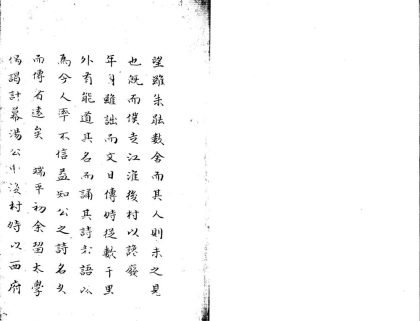 望雖朱鼓數舍而其人則未之見
也既而僕走江淮後村以謗廢
年月雖詘而文日傳時從數千里
外有能道其名而誦其詩者語以
為今人率不信益知公之詩名久
而傳者遠矣 端平初余習太學
偶謁計幕湯公巾後村時以西府